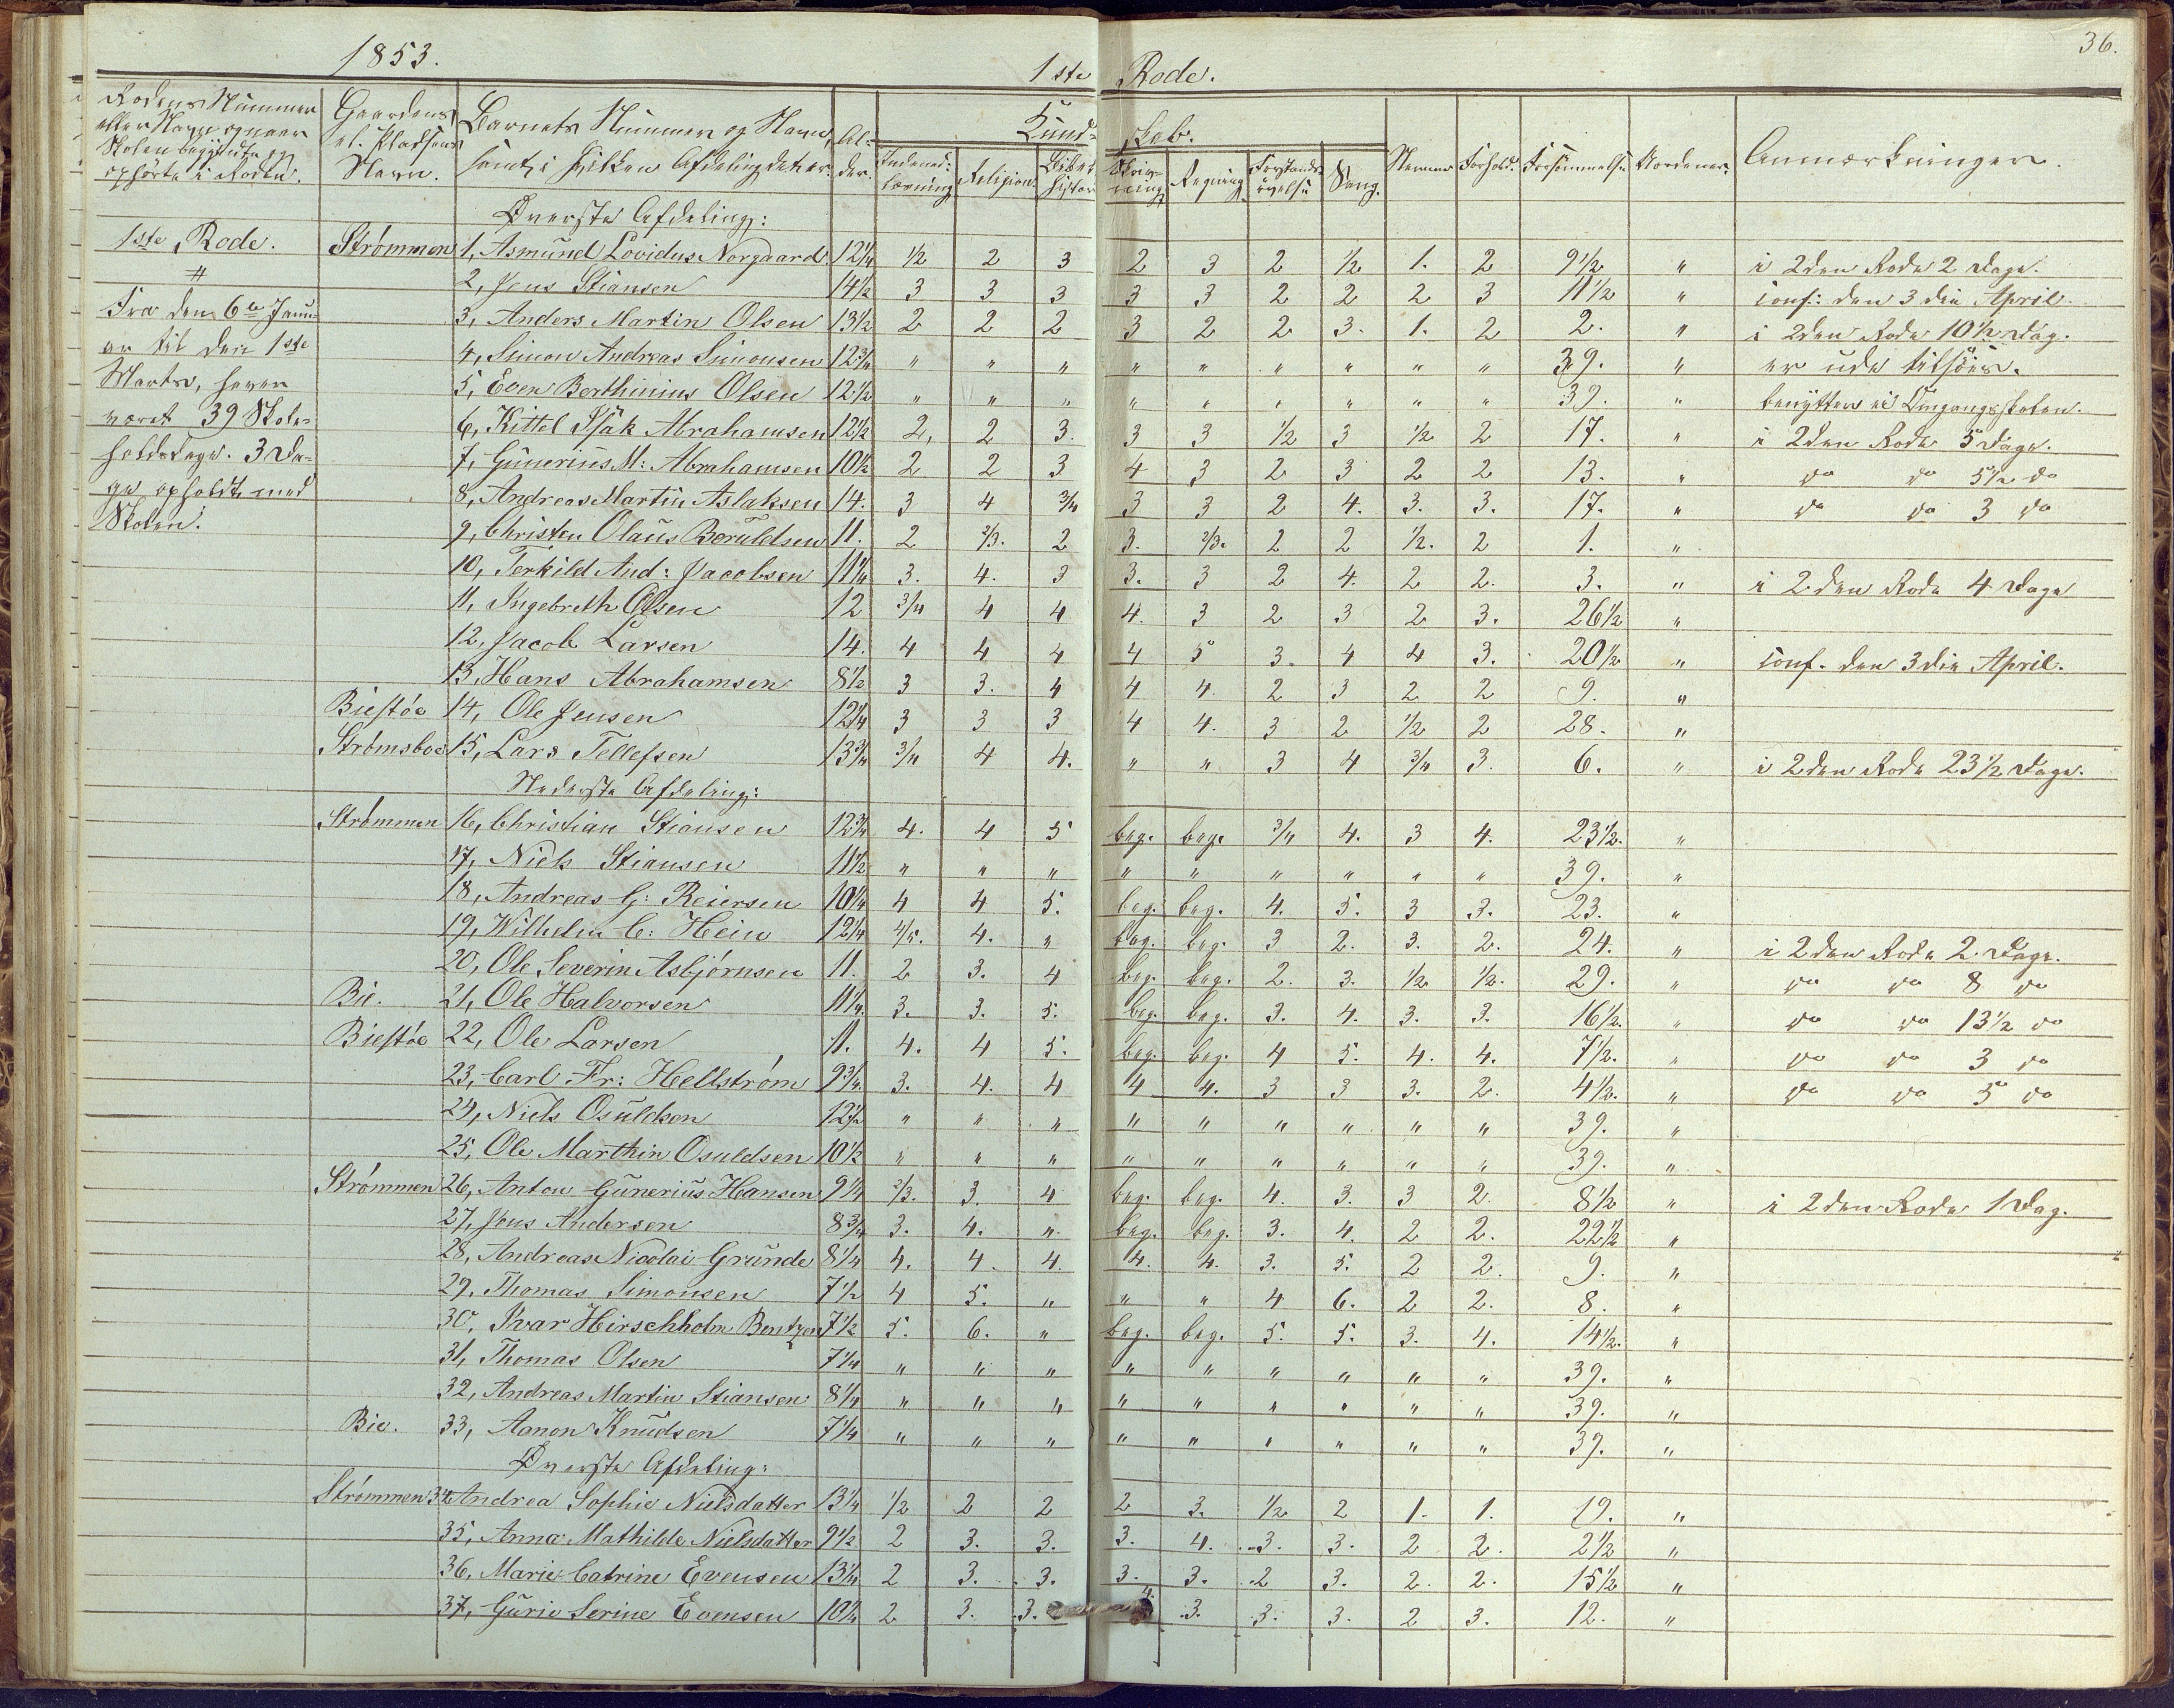 36.
1853.
1ste Rode.
Rodens Nummer eller Navn og naar Skolen begyndte og ophörte i Roden.
Gaardens el. Pladsens Navn.
Barnets Nummer og Navn, samt i hvilken Afdeling det er.
Alder.
Kundskab.
Indenadlæsning
Religion
Bibelhistor
Skrivning
Regning
Forstandsövelse
Sang.
Nemme
Forhold.
Forsömmelse
Anmærkninger.
1ste Rode.
Fra den 6te Januar til den 1ste Marts, haver været 39 Skoleholdsdage. 3 Dage opholdt med Skolen.
Överste Afdeling:
Strømmen 1, Asmund Lovidus Norgaard 12¼ ½ 2 3 2 3 2 ½ 1. 2 9½ " i 2den Rode 2 Dage.
2, Jens Stiansen 14½ 3 3 3 3 3 2 2 2 3 11½ " conf: den 3die April.
3, Anders Martin Olsen 13½ 2 2 2 3 2 2 3. 1. 2 2. " i 2den Rode 10½ Dag.
4, Simon Andreas Simonsen 12¾ " " " " " " " " " 39. " er ude tilsöes.
5, Even Berthinius Olsen 12½ " " " " " " " " " 39. " benytter ei Omgangsskolen.
6, Kittel Isak Abrahamsen 12½ 2, 2 3. 3 3 ½ 3 ½ 2 17. " i 2den Rode 5 Dage.
7, Gunerius M: Abrahamsen 10½ 2 2 3 4 3 2 3 2 2 13. " do do 5½ do
8, Andreas Martin Aslaksen 14. 3 4 ¾ 3 3 2 4. 3. 3. 17. " do do 3 do
9, Christen Olaus Beruldsen 11. 2 2/3. 2 3. 2/3. 2 2 ½. 2 1. "
10, Terkild And: Jacobsen 11¼ 3. 4. 3 3. 3 2 4. 2 2. 3. " i 2den Rode 4 Dage
11, Ingebreth Olsen 12 3/4 4 4 4. 3 2 3 2 3. 26½ "
12, Jacob Larsen 14. 4 4 4 4 5 3. 4 4 3. 20½ " conf. den 3die April.
13, Hans Abrahamsen 8½ 3 3. 4 4 4. 2 3 2 2 9. "
Biestöe 14, Ole Jensen 12¼ 3 3 3 4 4. 3 2 ½ 2 28. "
Strømsboe 15, Lars Tellefsen 13¾ 3/4 4 4. " " 3 4 3/4 3. 6. " i 2den Rode 23½ Dage.
Nederste Afdeling:
Strømmen 16, Christian Stiansen 12¾ 4. 4 5 beg. beg. 3/4 4. 3 4. 23½. "
17, Niels Stiansen 11½ " " " " " " " " " 39. "
18, Andreas G: Reiersen 10¼ 4 4 5. beg. beg. 4. 5. 3 3. 23. "
19, Wilhelm C: Hein 12¼ 4/5. 4. " beg. beg. 3 2. 3. 2. 24. " i 2den Rode 2 Dage.
20, Ole Severin Asbjörnsen 11. 2 3. 4 beg. beg. 2. 3. ½ ½. 29. " do do 8 do
Bie. 21, Ole Halvorsen 11¼. 3. 3. 5. beg. beg. 3. 4. 3. 3. 16½. " do do 13½ do
Biestöe 22, Ole Larsen 11. 4. 4 5. beg. beg. 4 5. 4. 4. 7½. " do do 3 do
23, Carl Fr: Hellstrøm 9¾. 3. 4. 4 4 4. 3 3 3. 2. 4½. " do do 5 do
24, Niels Osuldsen 12½ " " " " " " " " " 39. "
25, Ole Marthin Osuldsen 10½ " " " " " " " " " 39. "
Strømmen 26, Anton Gunerius Hansen 9¼ 2/3. 3. 4 beg. beg. 4. 3. 3 2. 8½ " i 2den Rode 1 Dag.
27, Jens Andersen 8¾ 3. 4. " beg. beg. 3. 4. 2 2. 22½ "
28, Andreas Nicolai Grunde 8¼ 4. 4. 4. 4. 4. 3. 5. 2 2. 9. "
29, Thomas Simonsen 7½ 4 5. " " " 4 6. 2 2. 8. "
30, Ivar Hirschholm Bentzen 7½ 5. 6. " beg. beg. 5. 5. 3. 4. 14½. "
31, Thomas Olsen 7¼ " " " " " " " " " 39. "
32, Andreas Martin Stiansen 8¼ " " " " " " " " " 39. "
Bie. 33, Aanon Knudsen 7¼ " " " " " " " " " 39. "
Överste Afdeling:
Strømmen 34, Andrea Sophie Nielsdatter 13¼ ½ 2 2 2 3. ½ 2 1. 1. 19. "
35, Anna Mathilde Nielsdatter 9½ 2 3. 3. 3. 4. 3. 3. 2 2. 2½ "
36, Marie Catrine Evensen 13¼ 2 3. 3. 3. 3. 2 3. 2. 2. 15½ "
37, Gurie Serine Evensen 10¼ 2 3. 3. 4. 3. 3. 3. 2 3. 12. "